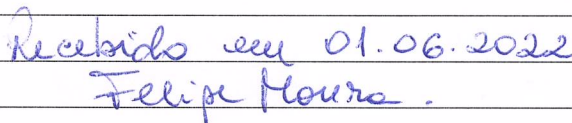 Recebido em 01.06.2022
Felipe Moura.